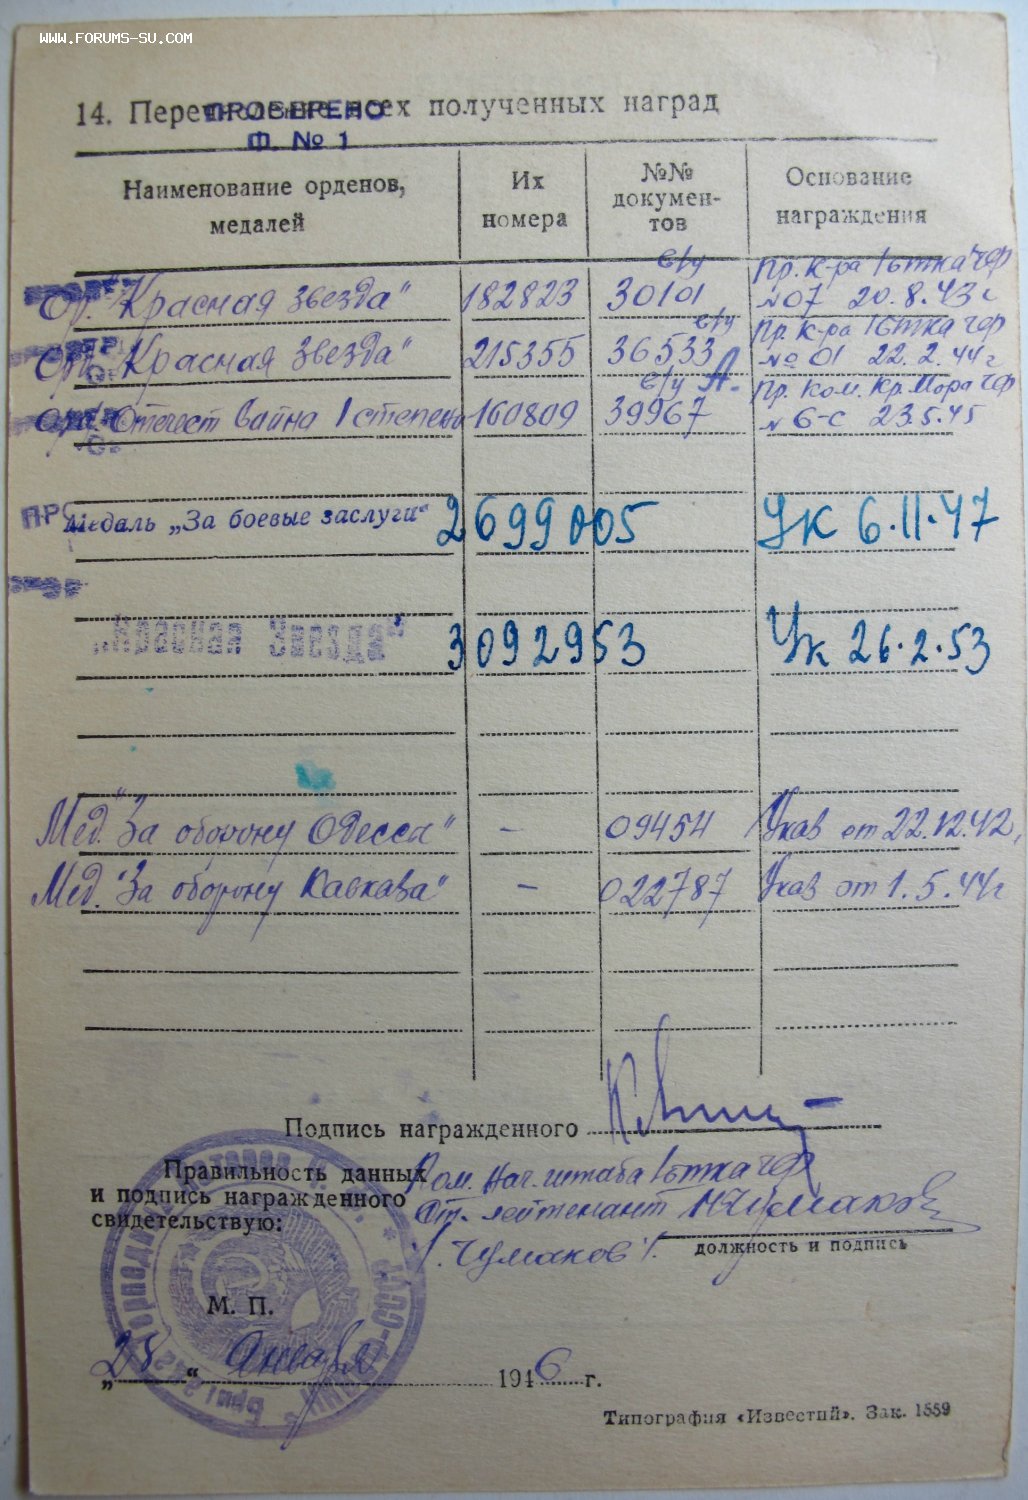 WWW.FORUMS-SU.COM
14. Перечисление всех полученных наград
ПРОВЕРЕНО
Ф. № 1
Наименование орденов, медалей
Их номера
№№ докумен-тов
Основание награждения
Ор. "Красная звезда" 182823 в/у 30101 Пр. К-ра 1бтка ЧФ № 07 20.8.43 г
Орд. "Красная звезда" 215355 в/у 36533 Пр. К-ра 1бтка ЧФ № 01 22.2.44 г
Орд. Отечест война 1 степени 160809 в/у 39967 Пр. Ком. Кр. Мора ЧФ № 6-с 23.5.45
Медаль „За боевые заслуги“ 2699005 УК 6.11.47
„Красная Звезда“ 3092953 Ук 26.2.53
Мед. "За оборону Одесса" - 09454 Указ от 22.12.42
Мед. "За оборону Кавказа" - 022787 Указ от 1.5.44 г
Подпись награжденного
Правильность данных
и подпись награжденного
свидетельствую:
Пом. нач. штаба 1бтка ЧФ
Ст. лейтенант Чумаков
/Чумаков/.
должность и подпись
М. П.
„28“ Января 1946 г.
Типография «Известий». Зак. 1559